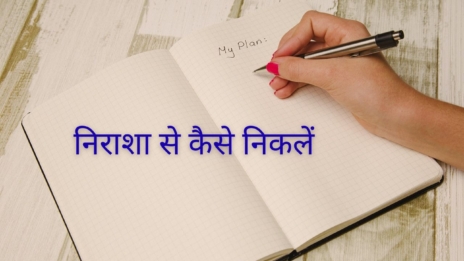 My Plan:
निराशा से कैसे निकलें